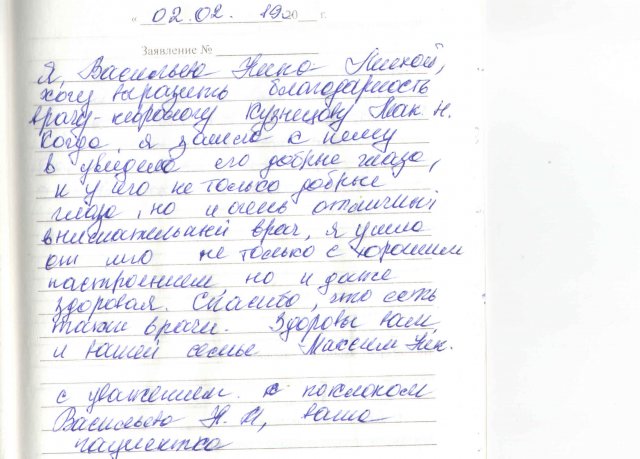 « 02.02. 1920 г.
Заявление №
Я, Васильева Нина
хочу выразить благодарность
врачу-неврологу Кузнецову Мак. Н.
Когда я зашла к нему
в увидела его добрые глаза,
и у него не только добрые
глаза, но и очень отличный
внимательный врач, я ушла
от него не только с хорошим
настроением, но и даже
здоровая. Спасибо, что есть
такие врачи. Здоровья вам
и вашей семье Максим Ник.
с уважением. с поклоном
Васильева Н. Н, ваша
пациентка